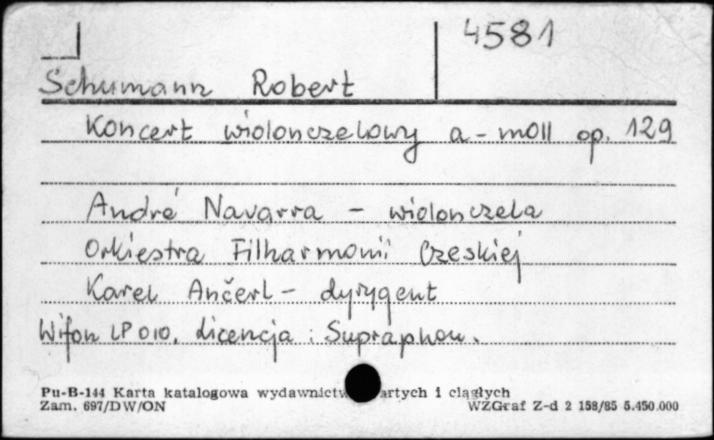 4581
Schumann Robert
Koncert wiolonczelowy a-moll op. 129
André Navarra - wiolonczela
Orkiestra Filharmonii Czeskiej
Karel Ančerl - dyrygent
Wifon LP 010. Licencja : Supraphon.
Pu-B-144 Karta katalogowa wydawnictw artych i ciągłych
Zam. 697/DW/ON WZGraf Z-d 2 158/85 5.450.000